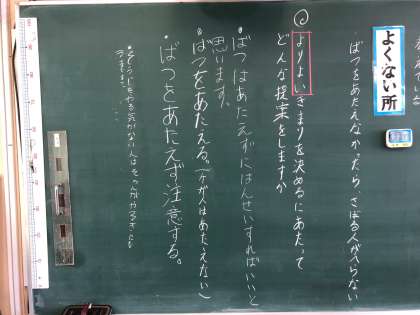 よくない所
・ばつをあたえなかったら、さぼる人が入らない
よりよいきまりを決めるにあたって
どんな提案をしますか
・ばつはあたえずにはんせいすればいいと
思います。
・ばつをあたえる。(ケガ人はあたえない)
・ばつをあたえず注意する。